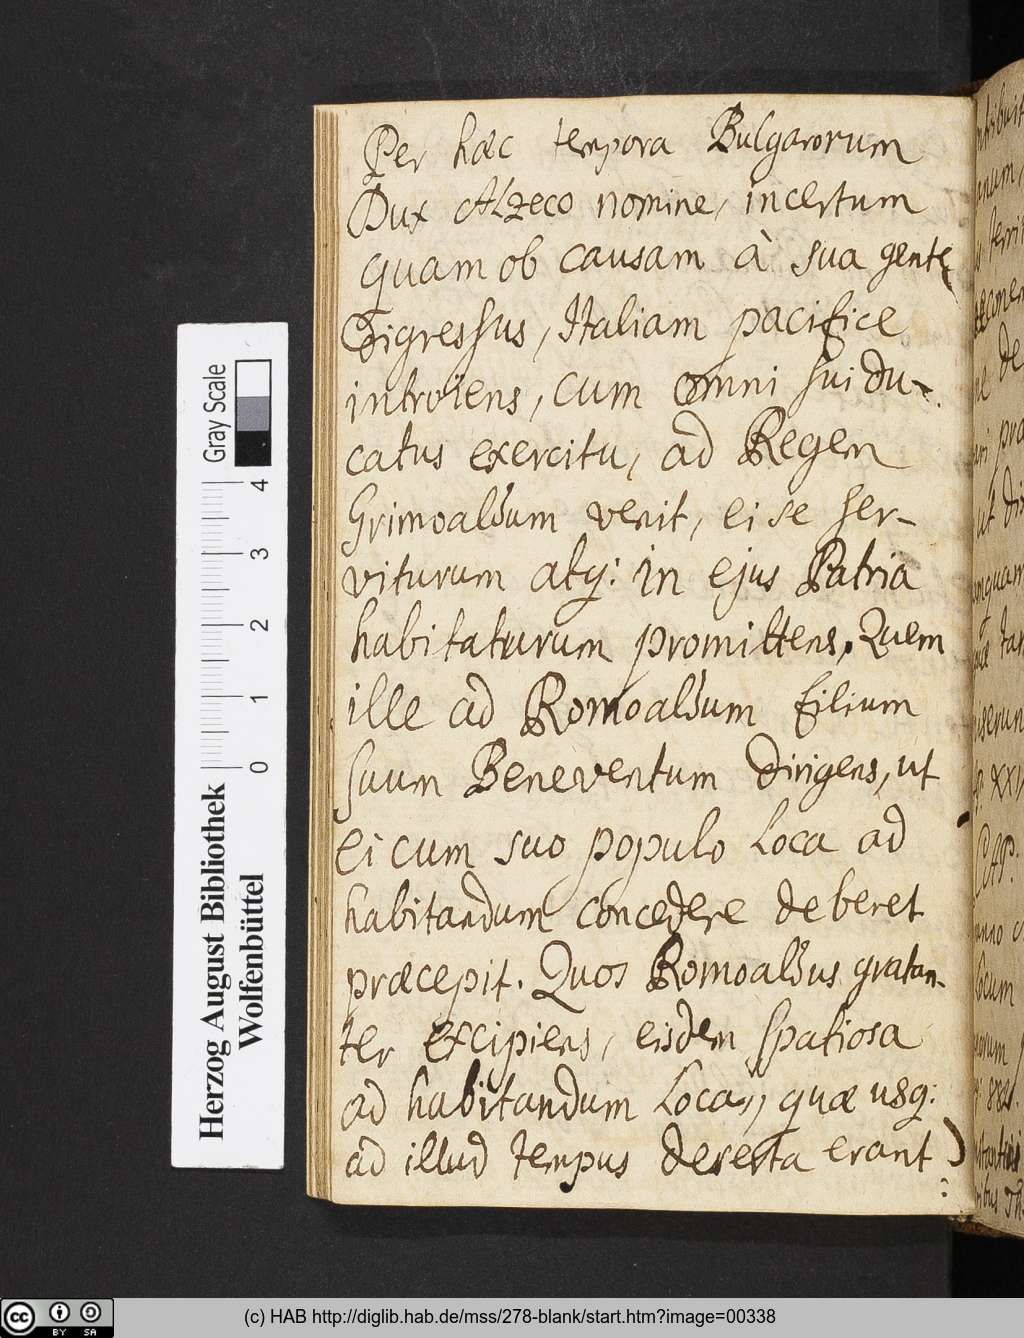 Per hæc tempora Bulgarorum
Dux Alzeco nomine, incertum
quam ob causam à sua gente,
digressus, Italiam pacifice
introiens, cum omni sui du-
catus exercitu, ad Regem
Grimoaldum venit, ei se ser-
viturum atq: in ejus Patria
habitaturum promittens. Quem
ille ad Romoaldum filium
suum Beneventum dirigens, ut
ei cum suo populo Loca ad
habitandum concedere deberet
præcepit. Quos Romoaldus gratan-
ter excipiens, eisdem spatiosa
ad habitandum Loca, quæ usq:
ad illud tempus deserta erant
Herzog August Bibliothek
Wolfenbüttel
0 1 2 3 4
Gray Scale
cc BY SA
(c) HAB http://diglib.hab.de/mss/278-blank/start.htm?image=00338